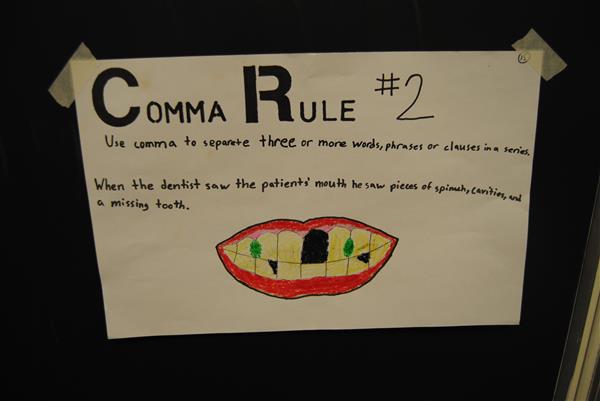 COMMA RULE #2
Use comma to separate three or more words, phrases or clauses in a series.
When the dentist saw the patients' mouth he saw pieces of spinuch, cavities, and
a missing tooth.